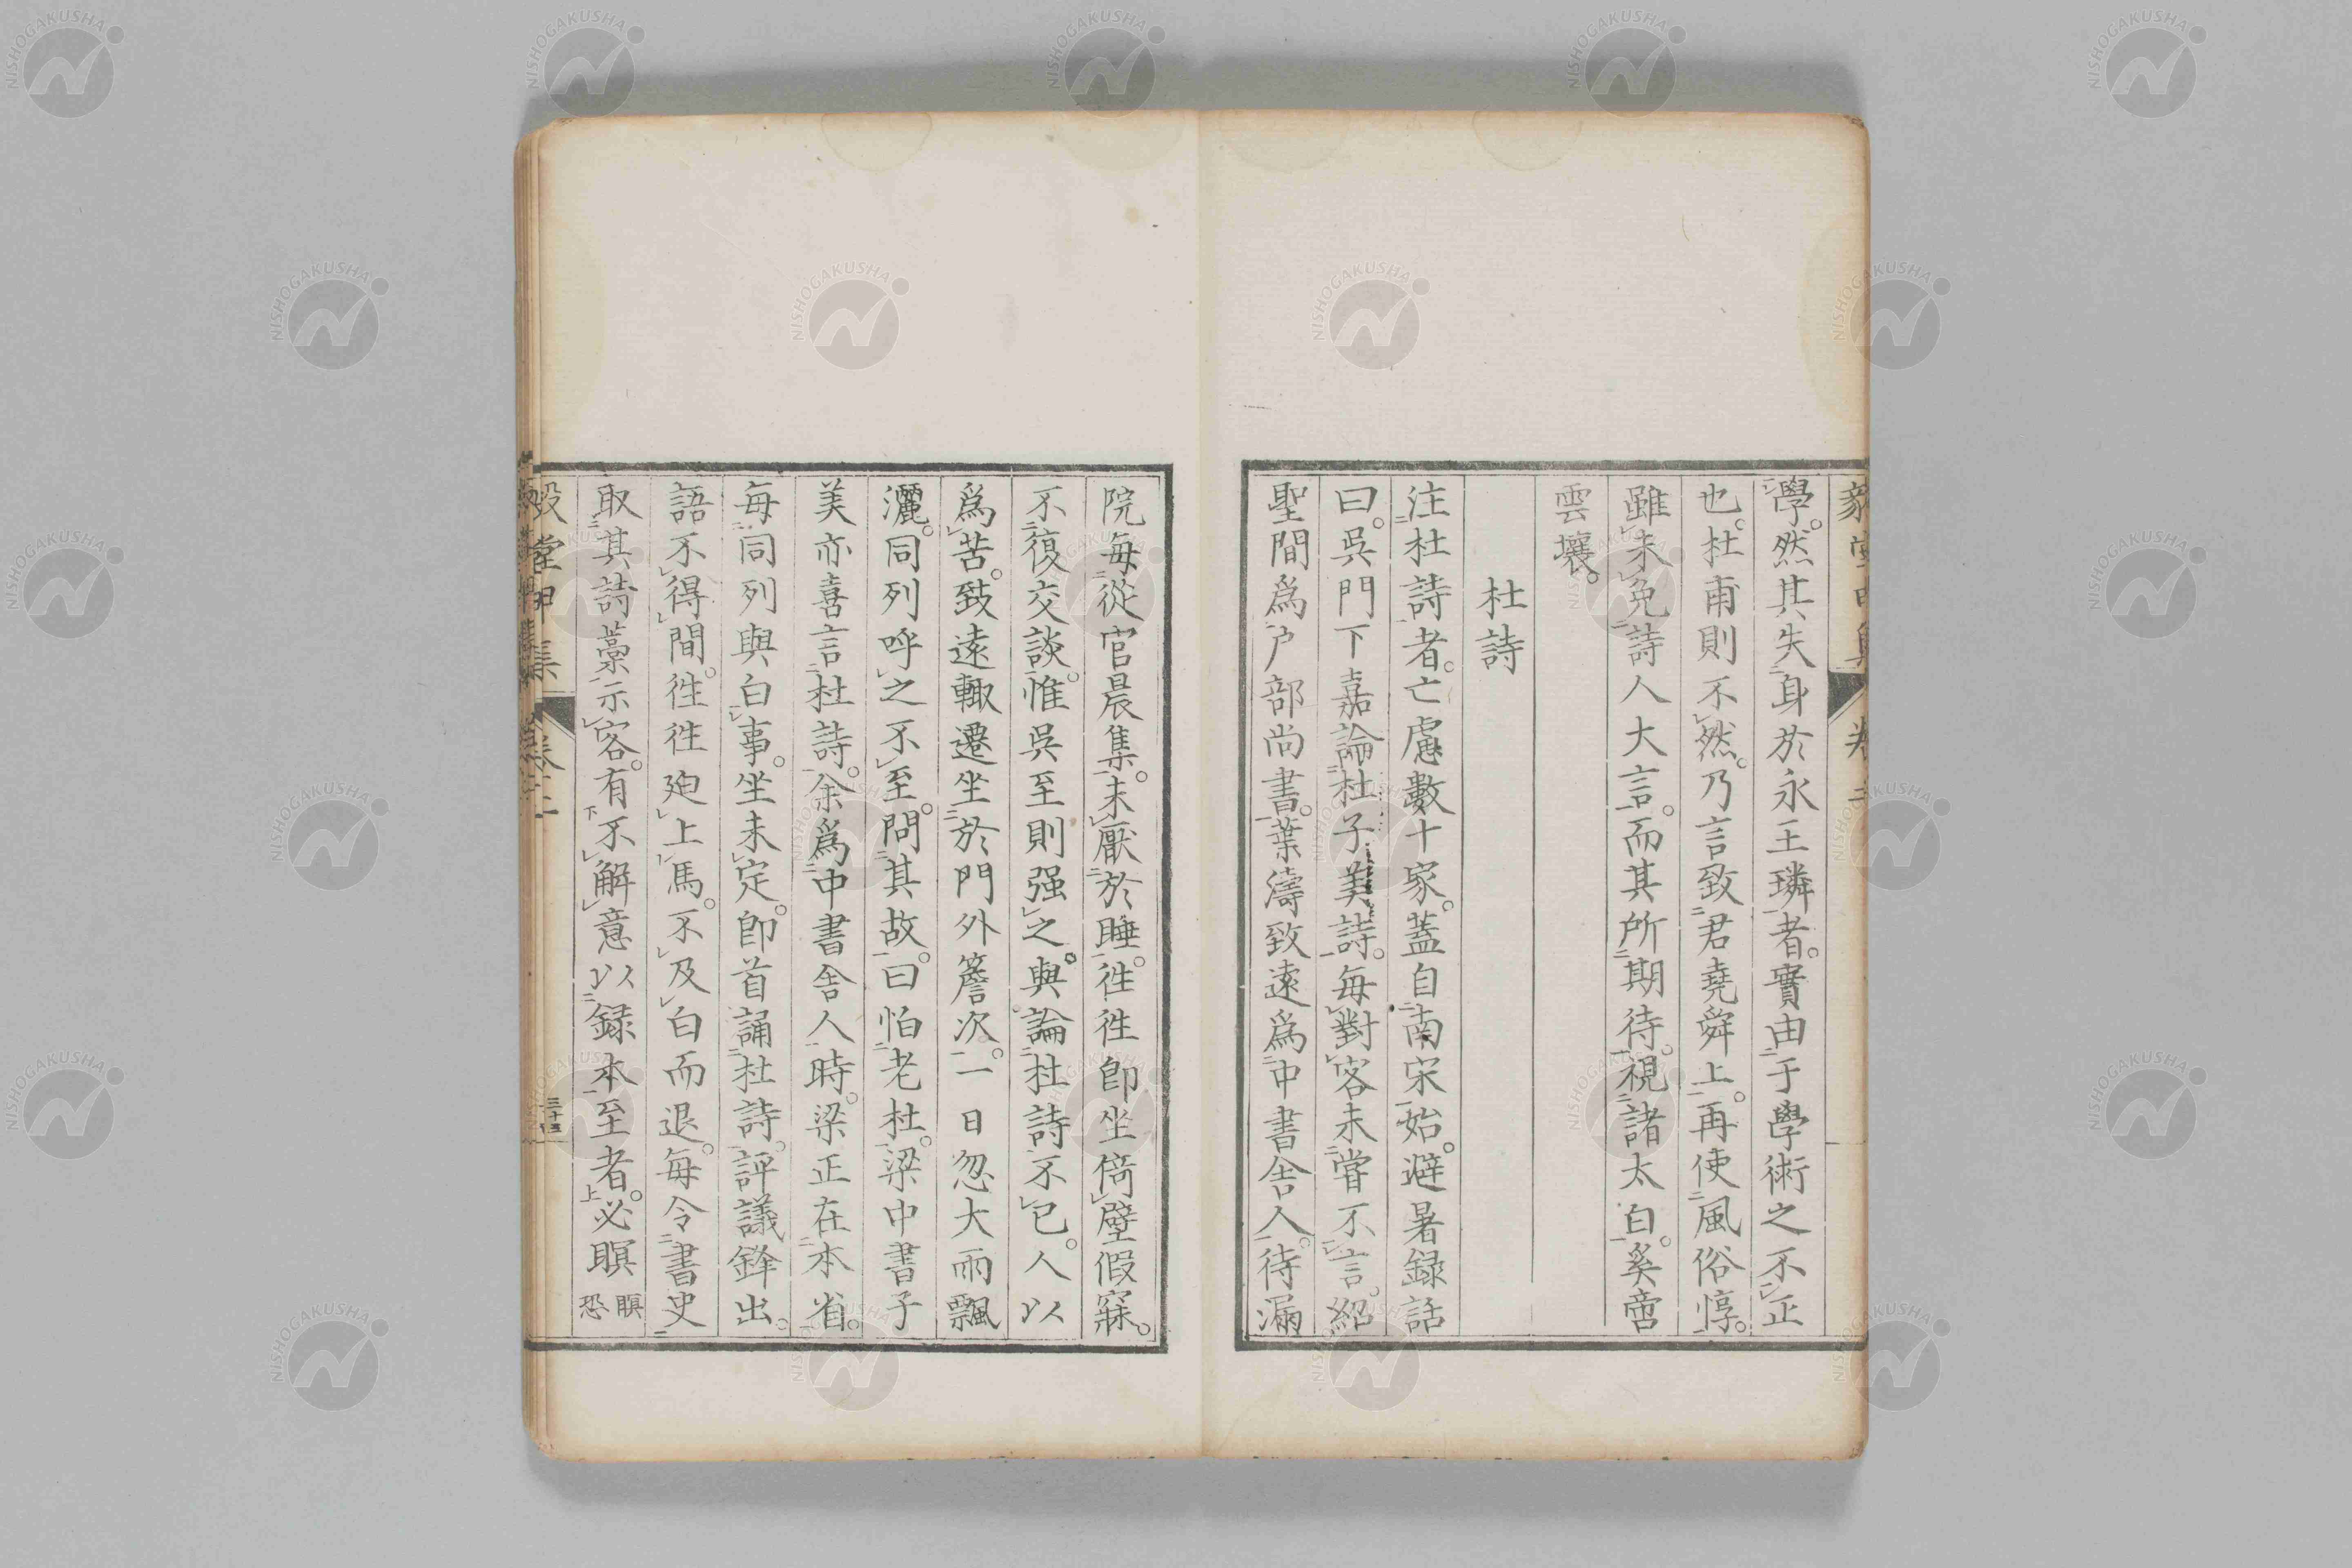 學。然其失身於永王璘者。實由于學術之不正
也。杜甫則不然。乃言致君堯舜上。再使風俗惇。
雖未免詩人大言。而其所期待。視諸太白。奚啻
雲壤。
杜詩
注杜詩者。亡慮數十家。蓋自南宋始。避暑録話
曰。吳門下嘉論杜子美詩。每對客未嘗不言。紹
聖間爲戶部尚書。葉濤致遠爲中書舍人。待漏
院每從官晨集。未厭於睡。徃徃即坐倚壁假寐。
不復交談。惟吳至則强之。與論杜詩不已。人以
爲苦。致遠輙遷坐於門外簷次。一日忽大雨飄
灑。同列呼之不至。問其故。曰怕老杜。梁中書子
美亦喜言杜詩。余爲中書舍人時。梁正在本省。
每同列與白事。坐未定。即首誦杜詩。評議鋒出。
語不得間。徃徃廹上馬。不及白而退。毎令書史
取其詩藁示客。有不解意以録本至者。必瞑
瞋
恐
卷二
三十四
NISHOGAKUSHA